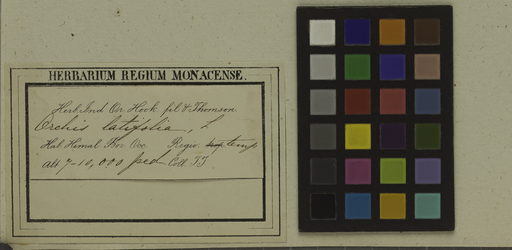 HERBARIUM REGIUM MONACENSE.
Herb. Ind. Or. Hook. fil. & Thomson
Orchis latifolia, L.
Hab. Himal. Bor. Occ. Regio. temp.
alt. 7-10,000 ped. Coll. T.T.